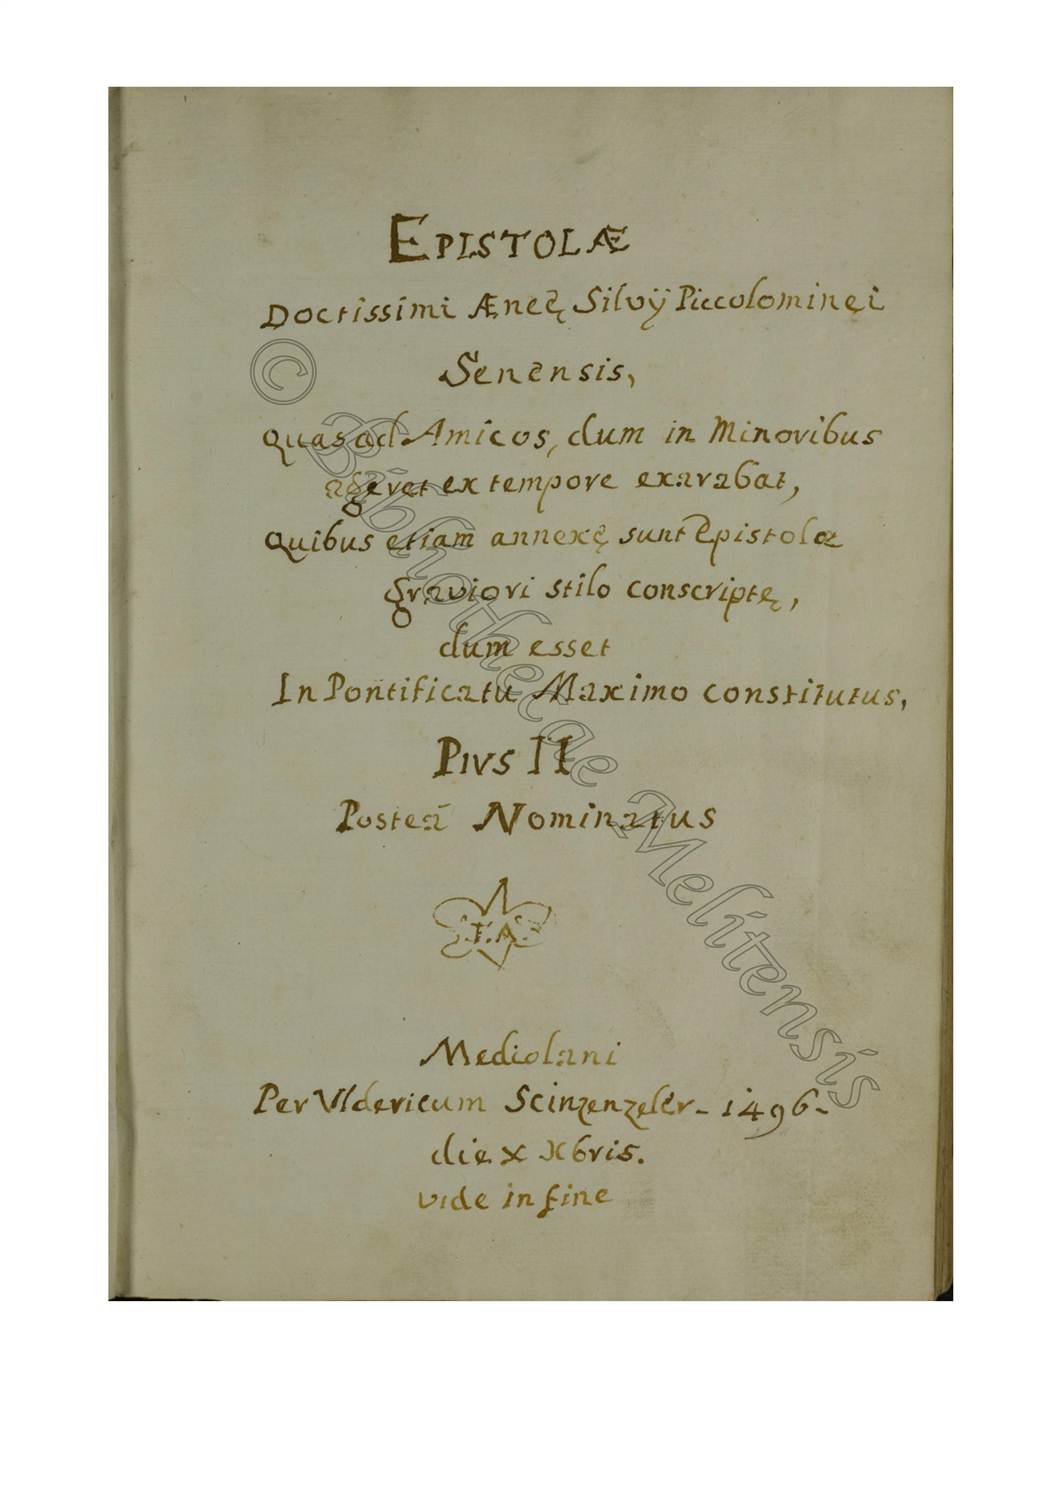 EPISTOLÆ
Doctissimi Æneę Silvÿ Piccolominęi
Senensis,
quas ad Amicos, dum in Minoribus
ageret ex tempore exarabat,
quibus etiam annexę sunt Epistolæ
graviori stilo conscriptę,
dum esset
In Pontificatu Maximo constitutus,
PIVS II
Posteà Nominatus
F.A.
Mediolani
Per Vldericum Scinzenzeler - 1496 -
die x Xbris.
vide in fine
© Bibliothecae Melitensis